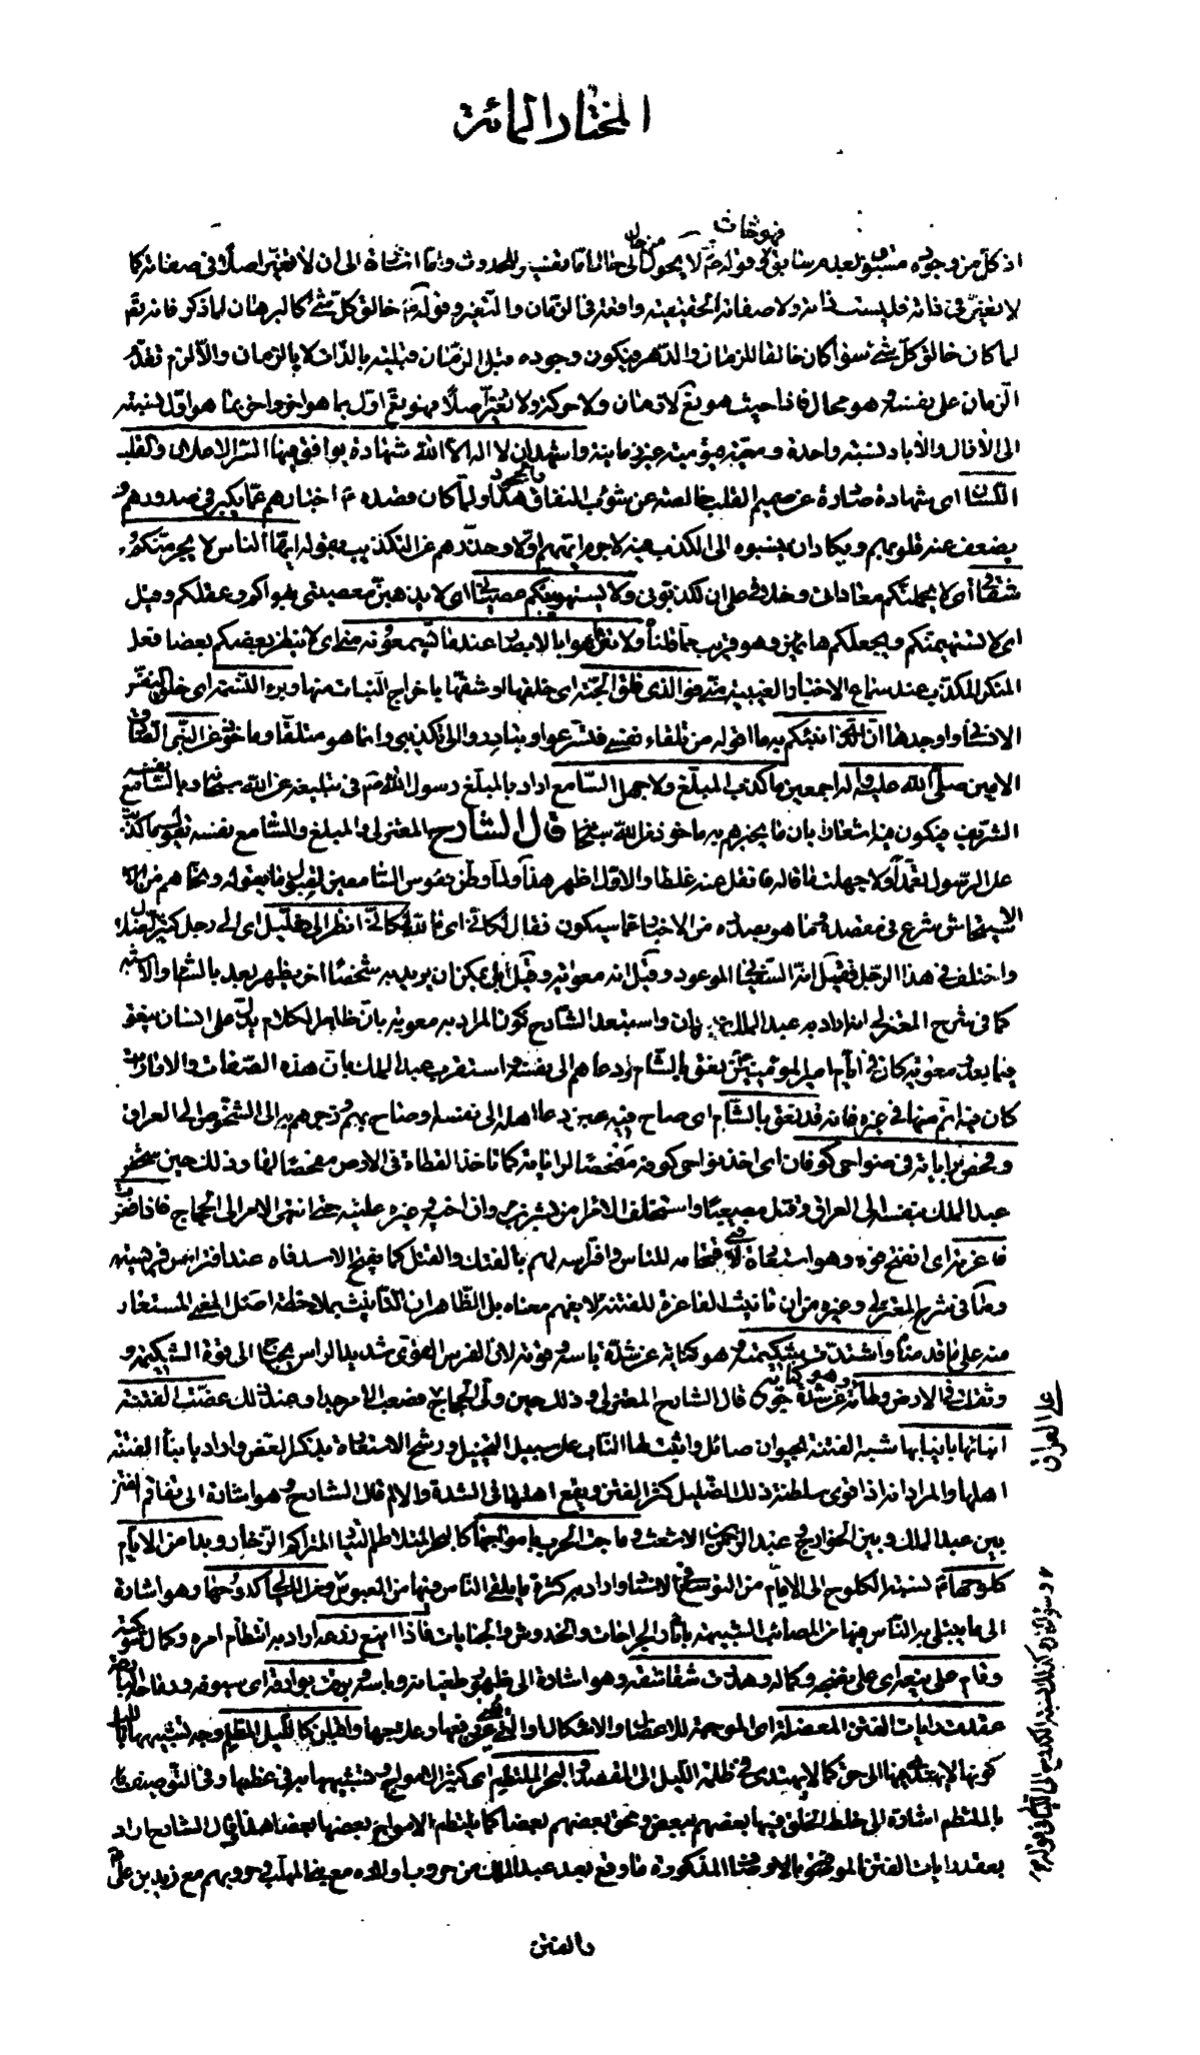 المختار المائة
فهو خالق
اذ كل من وجوده مسبوق بعدم سابق وقوله لا يحول من حال الى حال اما تفسير للحدوث واما اشارة الى ان لا تغير اصلا في صفاته كما
لا تغير في ذاته فليست ذاته ولا صفاته الحقيقية واقعة في الزمان والتغير وقوله خالق كل شئ كالبرهان لما ذكر فانه تم
لما كان خالق كل شئ سواه كان خالقا للزمان والدهر فيكون وجوده قبل الزمان قبلية بالذات لا بالزمان والا لزم تقدم
الزمان على نفسه وهو محال فاذا حيث هو تع لا زمان ولا حركة ولا تغير اصلا فهو تع اول بما هو اخر واخر بما هو اول نسبته
الى الآزال والآباد نسبة واحدة ومعية قيومية غير زمانية واشهد ان لا اله الا الله شهادة يوافق فيها السر الاعلان والقلب
اللسان اى شهادة صادرة عن صميم القلب خالصة عن شوب النفاق والجحود هذا ولما كان قصده اخبارهم عما يكبر في صدورهم و
يضعف عنه قلوبهم ويكاد ان ينسبوه الى الكذب فيه لا جرم ايقظهم اولا وحذرهم عن التكذيب بقوله ايها الناس لا يجرمنكم
شقاقى اى لا يحملنكم معاداتى وخلافى على ان تكذبونى ولا يستهوينكم عصيانى اى لا يذهبن معصيتى بهواكم وعقلكم وقيل
اى لا تستهيمنكم ويجعلكم هائمين وهو قريب مما قلنا ولا تتراموا بالابصار عند ما تسمعونه منى اى لا ينظر بعضكم بعضا فعل
المنكر المكذب عند سماع الاخبار الغيبية منى فو الذى فلق الحبة اى خلقها او شقها باخراج النبات منها وبرء النسمة اى خلق النفس
الانسانى واوجدها ان الذى انبئكم به ما اقوله من تلقاء نفسى فتسرعوا وتبادروا الى تكذيبى وانما هو متلقا وماخوذ عن النبي
الامين صلى الله عليه واله اجمعين ما كذب المبلغ ولا جهل السامع اراد بالمبلغ رسول الله ص في تبليغه عن الله سبحانه وبالسامع نفسه
الشريف فيكون فيه اشعار بان ما يخبرهم به ماخوذ عن الله سبحانه قال الشارح المعتزلى والمبلغ والسامع نفسه يقول ما كذبت
على الرسول تعمدا ولا جهلت ما قاله فانقل عنه غلطا والاول اظهر هذا ولما وطن نفوس السامعين لقبول ما يقوله
شرع في مقصده مما هو بصدده من الاخبار عما سيكون فقال لكانى اى والله لكانى انظر الى ضليل اى الى رجل كثير الضلال
واختلف في هذا الرجل فقيل انه السفيانى الموعود وقيل انه معوية وقيل بل يمكن ان يريد به شخصا اخر يظهر بعد بالشام والاشبه
كما في شرح المعتزلى انه اراد به عبد الملك بن مروان واستبعد الشارح كون المراد به معوية بان ظاهر الكلام يدل على انسان ينعق
فيما بعد ومعوية كان في ايام امير المؤمنين ينعق بالشام ودعاهم الى نفسه واستقرب عبد الملك بان هذه الصفات والامارات
كان فيه اتم منها في غيره فانه قد نعق بالشام اى صاح فيه حين دعا اهله الى نفسه وصاح بهم وزجرهم الى الشخوص الى العراق
وفحص براياته في ضواحى كوفان اى اخذ نواحى كوفة مفحصا لراياته كما تاخذ القطاة في الارض مفحصا لها وذلك حين شخص
عبد الملك بنفسه الى العراق وقتل مصعبا واستخلف الامراء من بشر بن مروان اخيه وغيره عليه حتى انتهى الامر الى الحجاج فاذا فغرت
فاغرته اى انفتح فوه وهو استعارة لاقتحامه للناس وافتراسه لهم بالفتك والقتل كما يفتح الاسد فاه عند افتراس فريسته
وما في شرح المعتزلى وغيره من ان تانيث الفاغرة للفتنة لا يفهم معناه بل الظاهر ان التانيث بملاحظة اصل المعنى المستعار
منه على ما قدمنا واشتدت شكيمته هو كناية عن شدة باسه وقوته لان الفرس القوى شديد الراس يحتاج الى قوة الشكيمة و
ثقلت في الارض وطأته وهو كناية عن شدة جوره قال الشارح المعتزلى وذلك حين ولى الحجاج فصعب الامر جدا وعند ذلك عضت الفتنة
ابنائها بانيابها شبه الفتنة بحيوان صائل واثبت لها الناب على سبيل التخييل ورشح الاستعارة بذكر العض واراد بابناء الفتنة
اهلها والمراد انه اذا قوى سلطنة ذلك الضليل كثر الفتن ويقع اهلها في الشدة والالم قال الشارح وهو اشارة الى تفاقم الفتن
بين عبد الملك وبين الخوارج وعبد الرحمن بن الاشعث وماجت الحرب بامواجها كالبحر المتلاطم التيار المتراكم الزخار وبدا من الايام
كلوحها نسبة الكلوح الى الايام من التوسع في الاسناد واراد به كثرة ما يلقى الناس فيها من العبوس ومن الليالى كدوحها وهو اشارة
الى ما يبتلى به الناس فيها من المصائب الشبيهة باثار الجراحات والخدوش والجنايات فاذا اينع زرعه اراد به انتظام امره وكمال شوكته
وقام على ينعه اى على نضجه وكماله وهدرت شقاشقه وهو اشارة الى ظهور طغيانه وباسه وبرقت بوارقه اى سيوفه ورماحه
عقدت رايات الفتن المعضلة اى الموجبة للاعضال والاشكال في دفعها وعلاجها واقبلن كالليل المظلم وجه تشبيهها بالليل
كونها لا يهتدى فيها الى حق كما لا يهتدى في ظلمة الليل الى المقصد والبحر الملتطم اى كثير الامواج وتشبيهها به في عظمها وفي التوصيف
بالملتطم اشارة الى خلط الخلق فيها بعضهم ببعض ومحق بعضهم بعضا كما يلتطم الامواج بعضها بعضا هذا قال الشارح اراد
بعقد رايات الفتن الموصوفة بالاوصاف المذكورة ما وقع بعد عبد الملك من حروب اولاده مع بنى المهلب وحروبهم مع زيد بن على
على العراق
والفتن